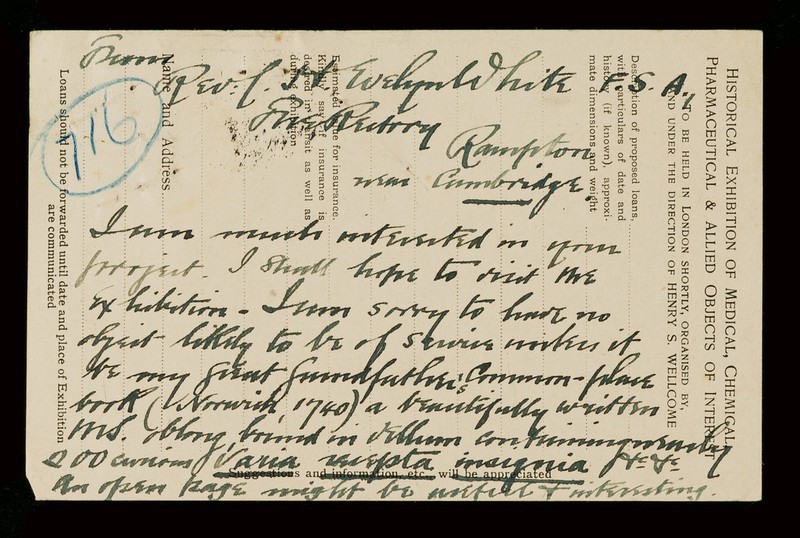 HISTORICAL EXHIBITION OF MEDICAL, CHEMICAL,
PHARMACEUTICAL & ALLIED OBJECTS OF INTEREST
TO BE HELD IN LONDON SHORTLY, ORGANISED BY,
AND UNDER THE DIRECTION OF HENRY S. WELLCOME
Description of proposed loans,
with particulars of date and
history (if known) approxi-
mate dimensions and weight
Estimated value for insurance.
Kindly say if insurance is
desired in transit as well as
during exhibition
Name and Address
Loans should not be forwarded until date and place of Exhibition
are communicated
Suggestions and information, etc., will be appreciated
716
From
Rev: C. H. Evelyn White F.S.A.,
The Rectory
Rampton
near Cambridge.
I am much interested in your
project. I shall hope to visit the
Exhibition - I am sorry to have no
object likely to be of service unless it
be my great grandfather's Common-place
book (Norwich, 1740) a beautifully written
MS. oblong, bound in vellum containing nearly
200 curious Varia recepta insignia &c. &c.
An open page might be useful & interesting.